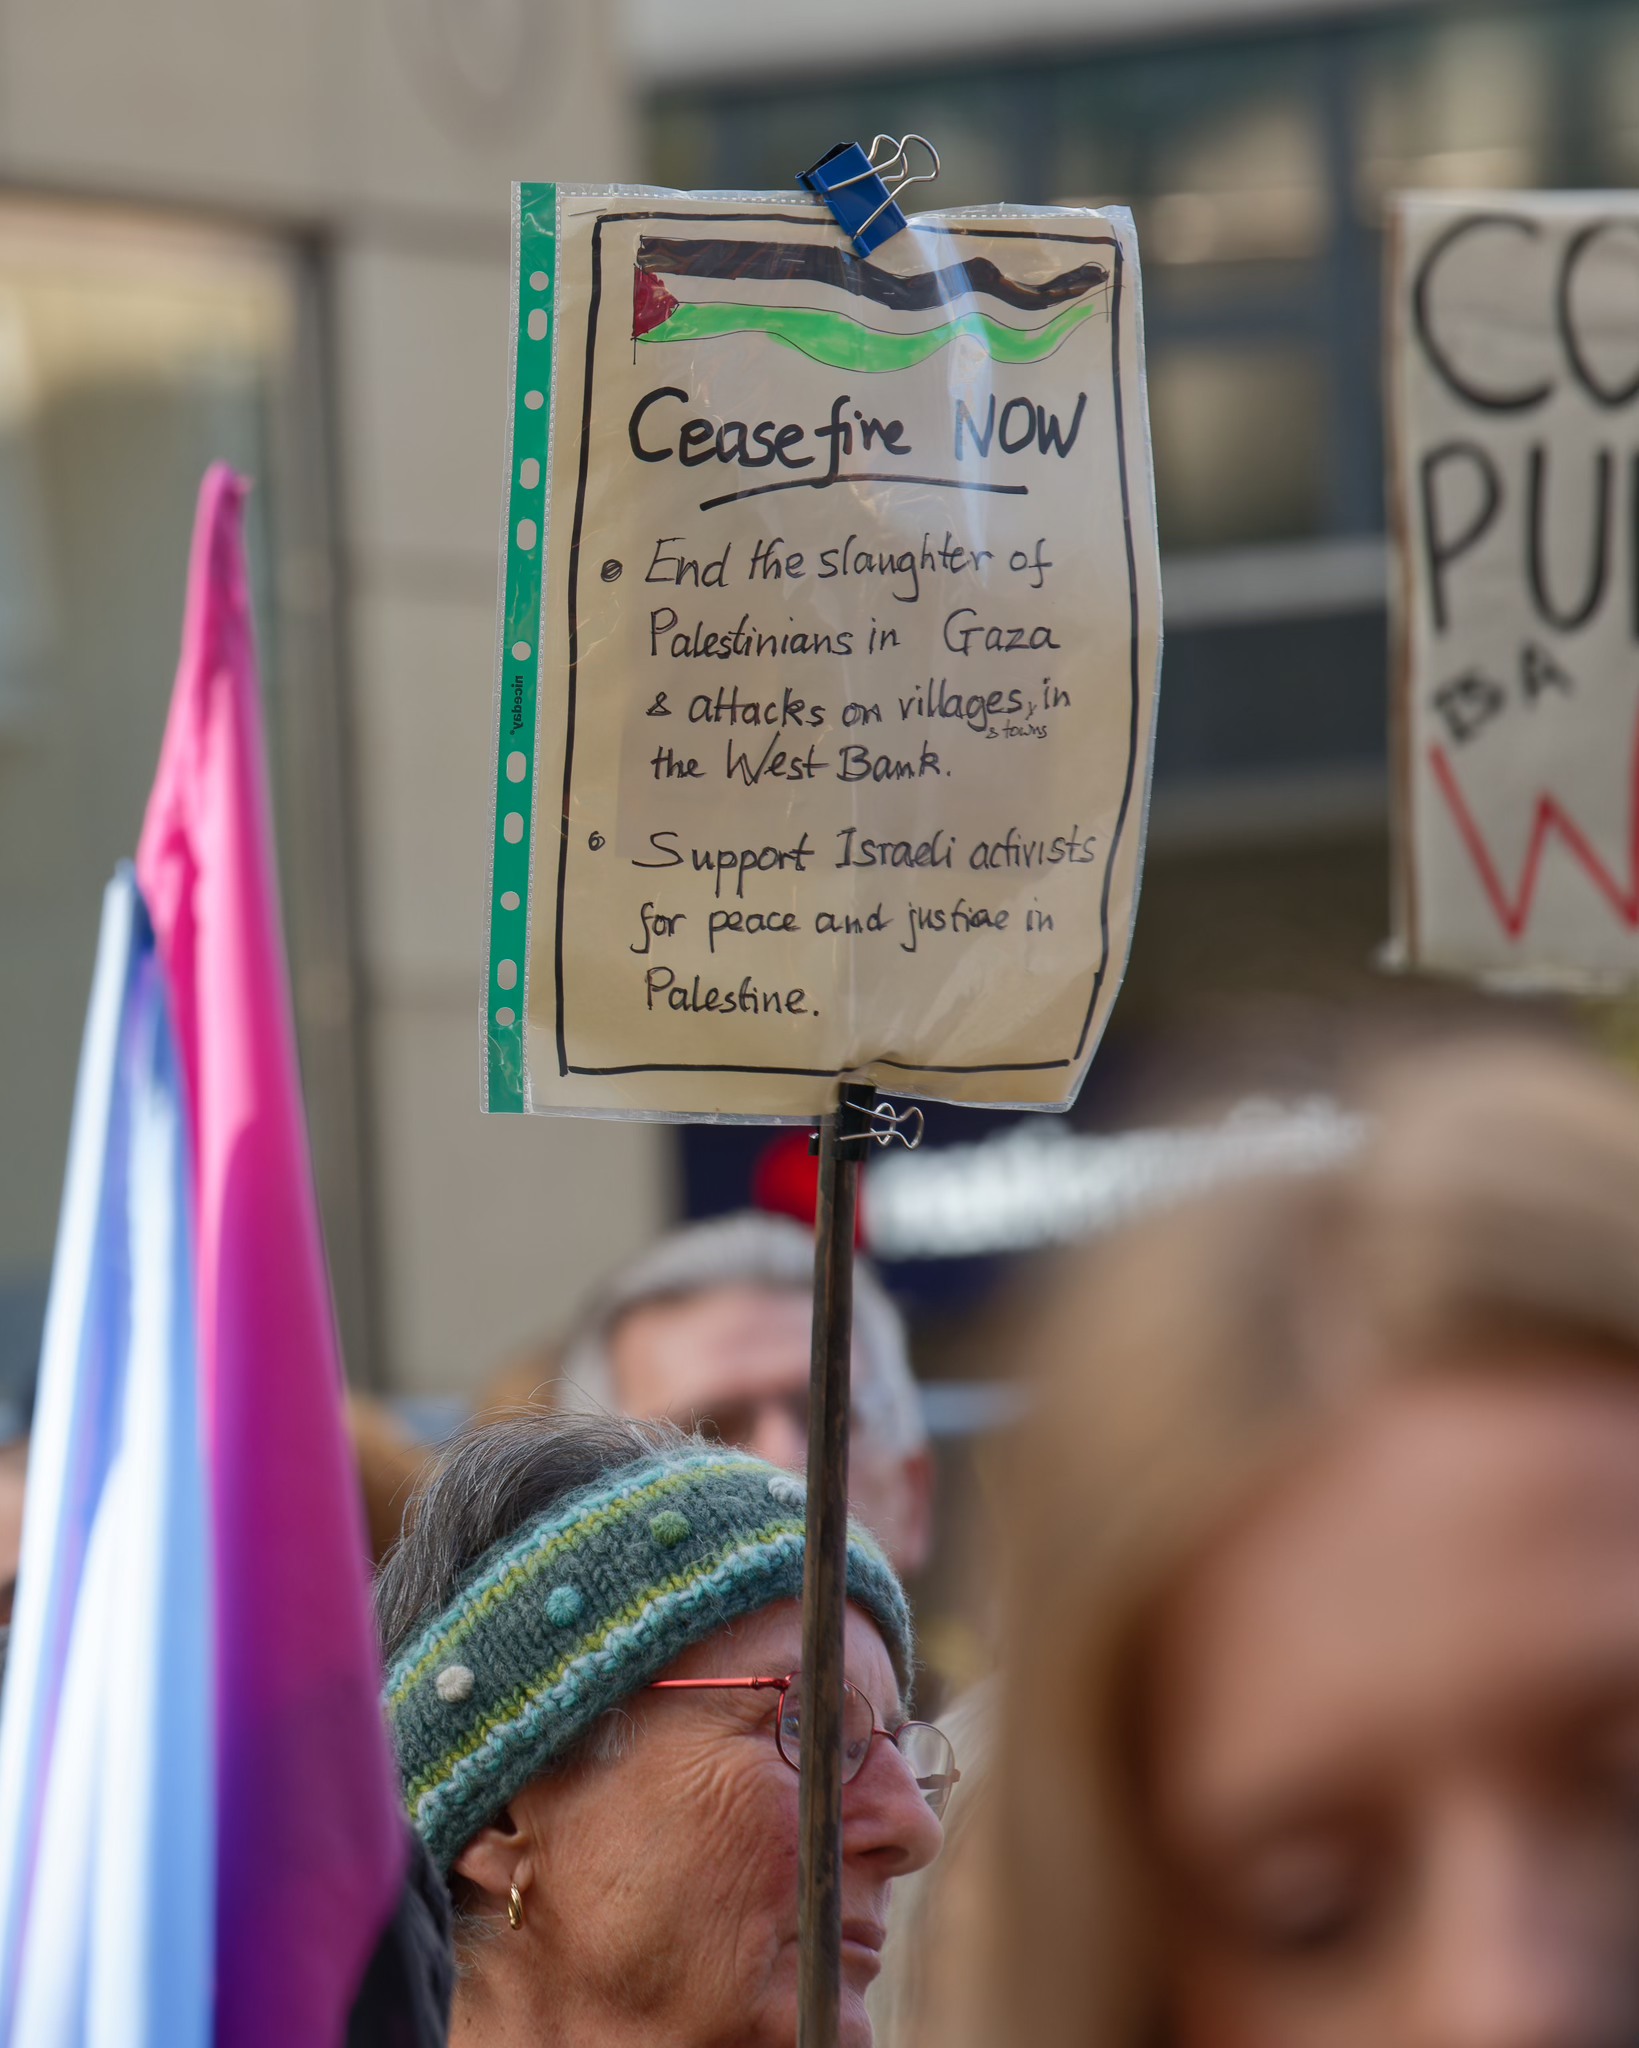 Ceasefire NOW
End the slaughter of
Palestinians in Gaza
& attacks on villages, in
& towns
the West Bank.
Support Israeli activists
for peace and justice in
Palestine.
niceday
CO
PU
IS A
W